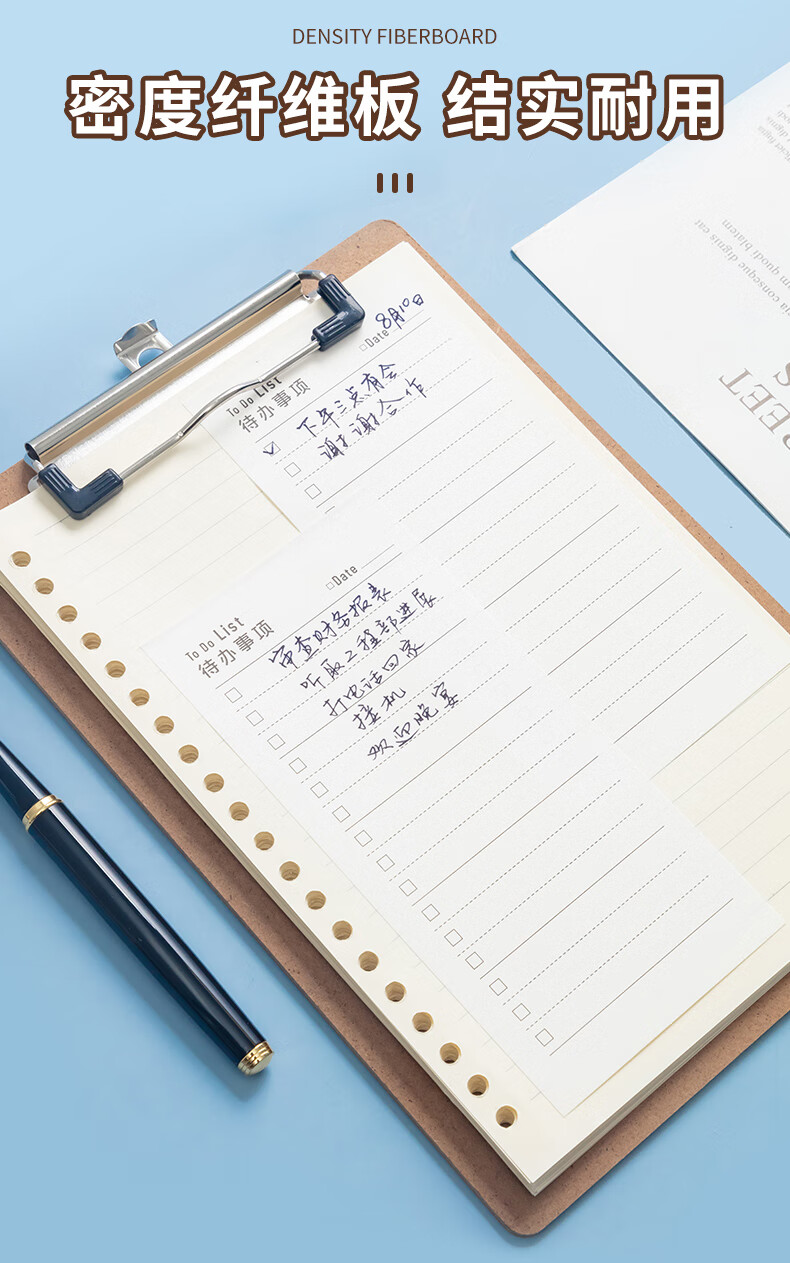 DENSITY FIBERBOARD
密度纤维板 结实耐用
□Date 8月10日
To Do List
待办事项
下午三点有会
谢谢合作
□Date
To Do List
待办事项
审查财务报表
听取工程部进展
打电话回家
接机
欢迎晚宴